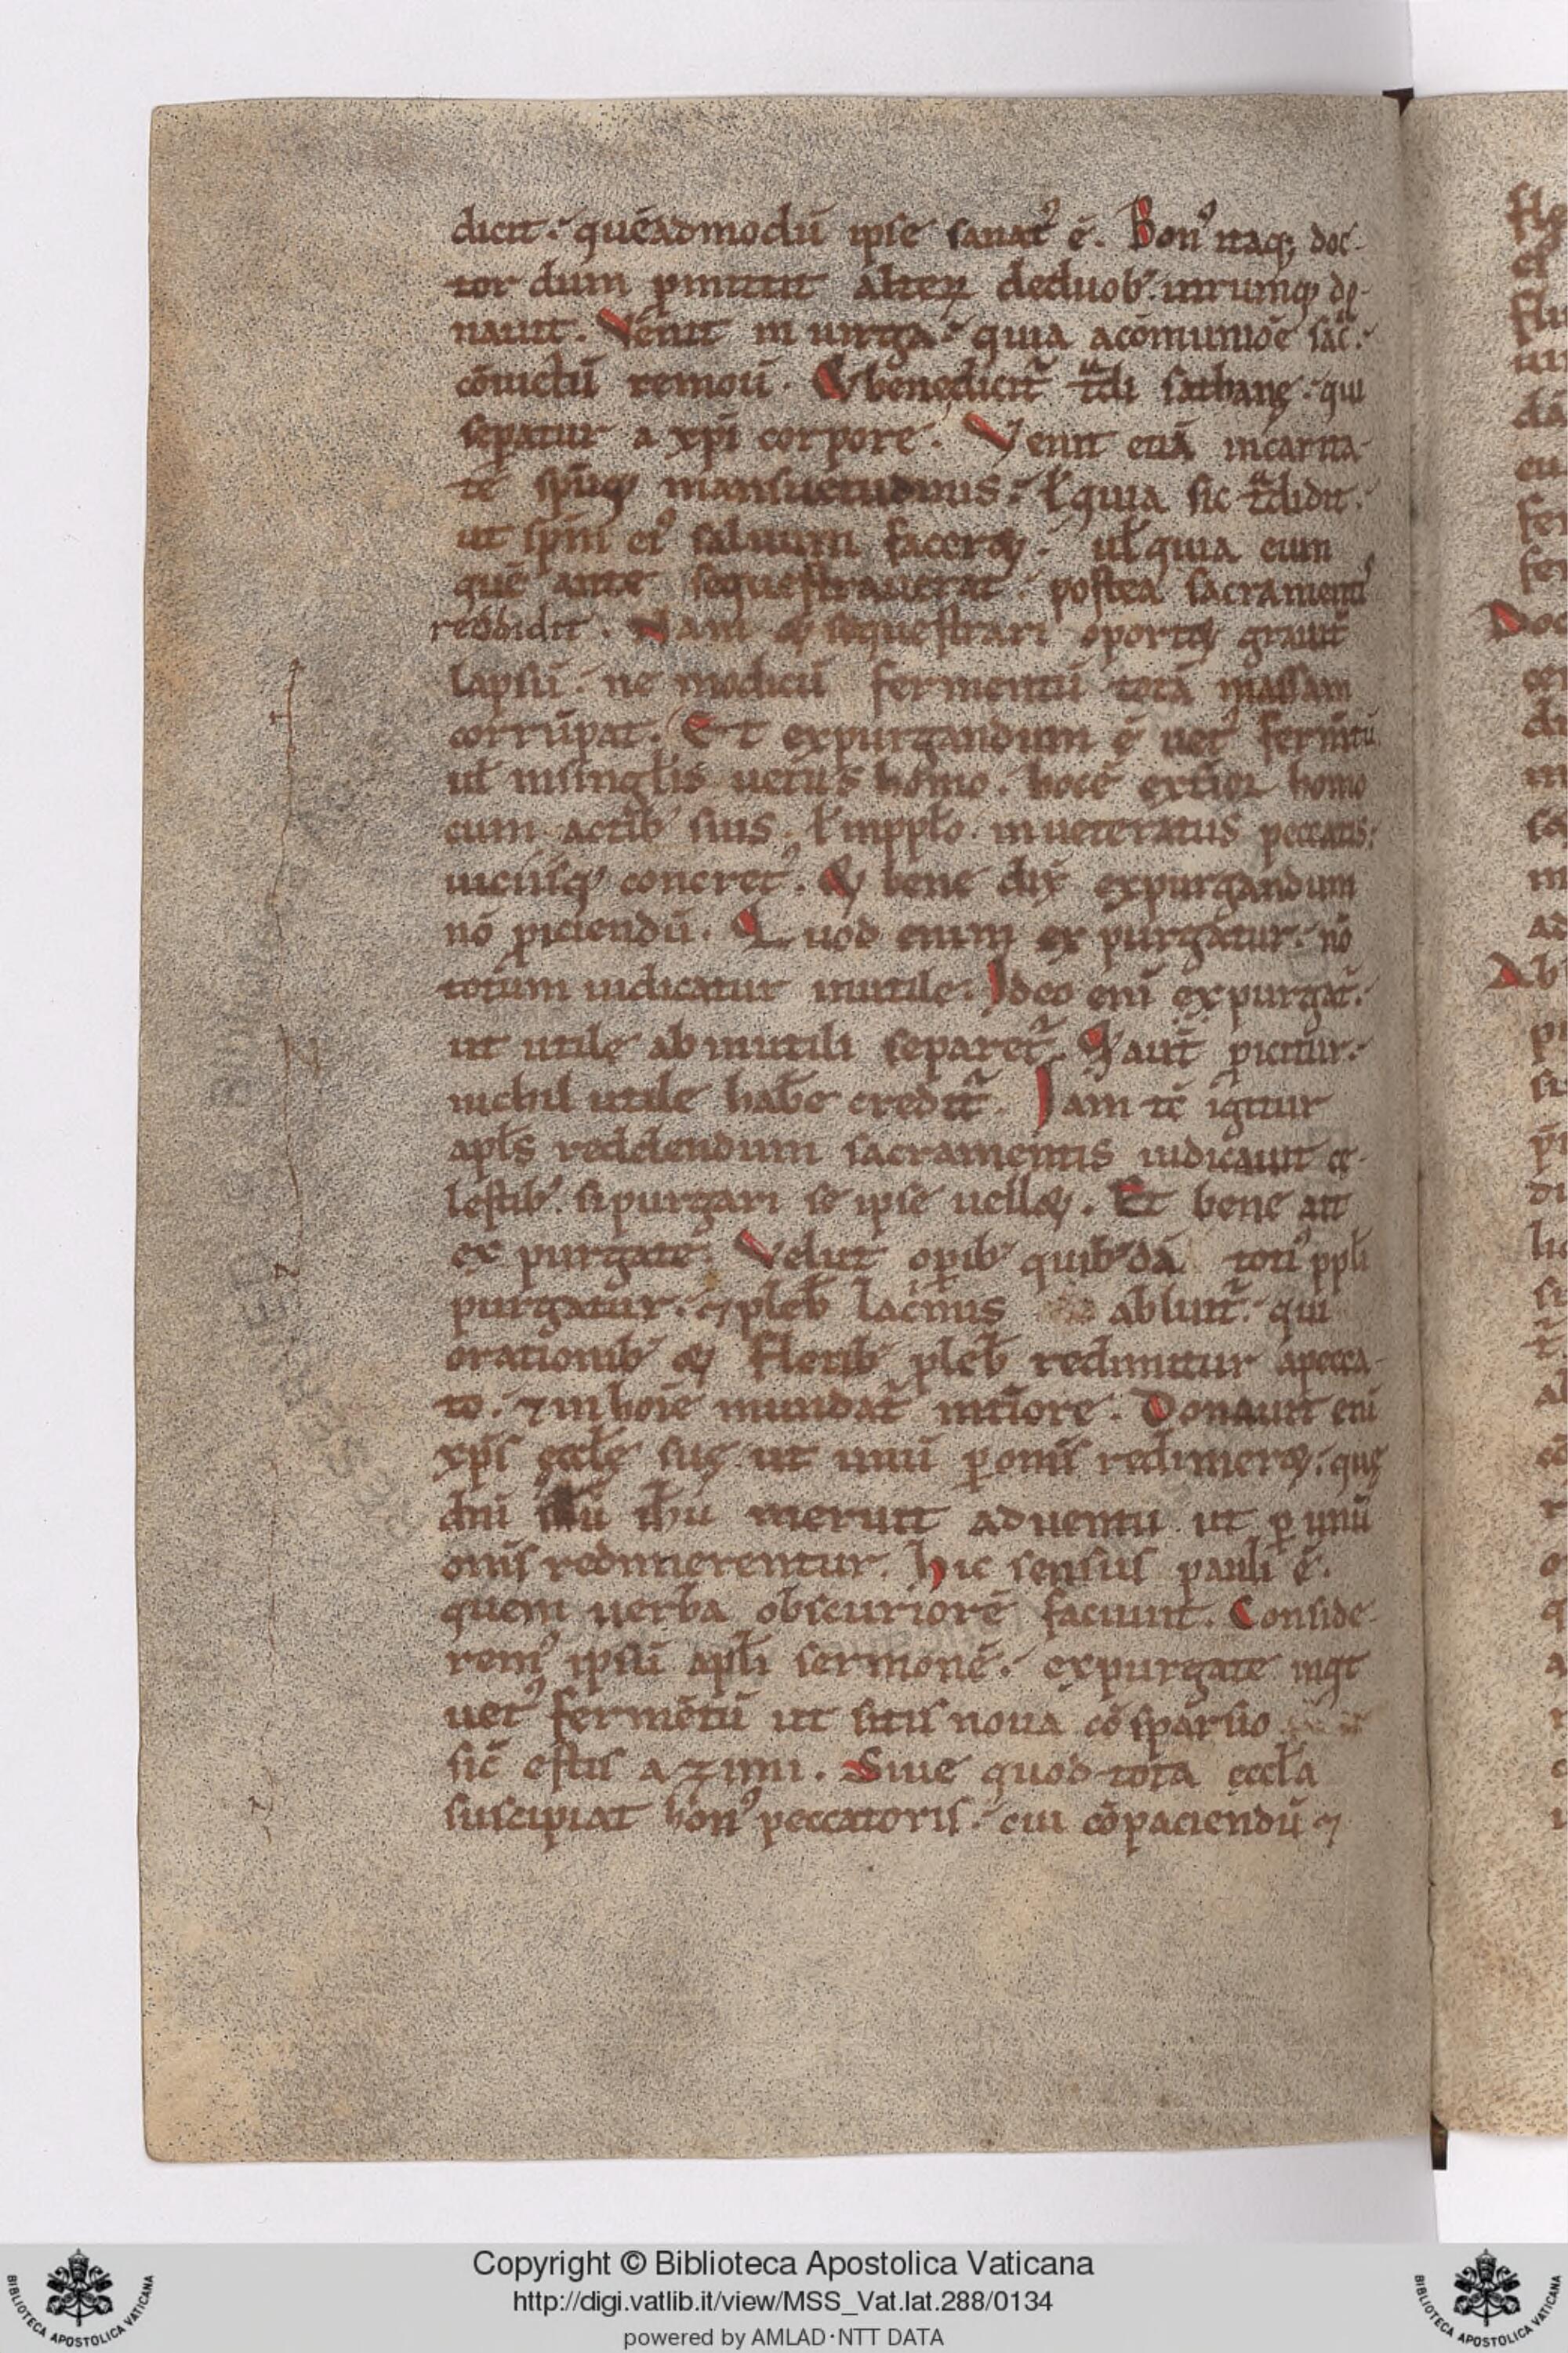 dicit. quēadmodū ipse sanatꝰ ē. Bonꝰ itaq; doc-
tor dum ꝓmittit alteꝝ deduobꝰ. utrumq; do-
nauit. Venit in uirga. quia acōmunioē sac̄.
cōuictū remouit. & benę dicit᷑ tͣdi sathanę. qui
sepatur a xp̄i corpore. Venit etiā incarita-
te sp̄uq; mansuetudinis. ł quia sic tͣdidit.
ut sp̄m eiꝰ saluum facer&. uł quia eum
quē ante sequestrauerat. postea sacramentꝰ
reddidit. Nam & sequestrari oport& grauit̄
lapsū. ne modicū fermentū totā massam
corrūpat. Et expurgandum ē uetꝰ fermtū
uł insingłis uetus homo. hocē exterior homo
cum actib; suis. ł inpplo. inueteratus peccatis.
uiciisq; concretꝰ. & bene dix̄ expurgandum
nō ꝓiciendū. Quod enim expurgatur. nō
totum iudicatur inutile. Ideo eni expurgat᷑.
ut utile ab inutili separet᷑. Qđ aut̄ ꝓicitur.
nichil utile habē credit᷑. Iam tc̄ igitur
apłs reddendum sacramentis iudicauit cę-
lestib;. si purgari se ipse uell&. Et bene ait
ex purgate. Velut opib; quib;dā totiꝰ ppłi
purgatur. ⁊ pleb̄ lac̄mis abluit᷑. qui
orationib; & fletib; pleb̄ redimitur apecca-
to. ⁊ inhoīe mundat᷑ int̄iore. Donauit eni
xp̄s ęcclę suę ut unū ꝑ om̄s redimer&. quę
dn̄i ih̄u meruit aduentu ut ꝑ unū
om̄s redimerentur. hic sensus pauli ē.
quem uerba obscuriorē faciunt. Conside-
remꝰ ipsū apłi sermonē. expurgate inqt
uetꝰ fermētū ut sitis noua cōsparsio
sic̄ estis azimi. Siue quod tota eccła
suscipiat honꝰ peccatoris. cui cōpaciendū ⁊
Copyright © Biblioteca Apostolica Vaticana
http://digi.vatlib.it/view/MSS_Vat.lat.288/0134
powered by AMLAD·NTT DATA
BIBLIOTECA APOSTOLICA VATICANA
BIBLIOTECA APOSTOLICA VATICANA